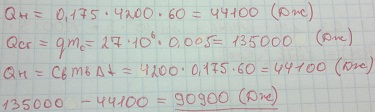 Qн = 0,175 · 4200 · 60 = 44100 (Дж)
Qсг = qmс = 27 · 10⁶ · 0.005 = 135000 (Дж)
Qн = Cв mв Δt = 4200 · 0,175 · 60 = 44100 (Дж)
135000 - 44100 = 90900 (Дж)